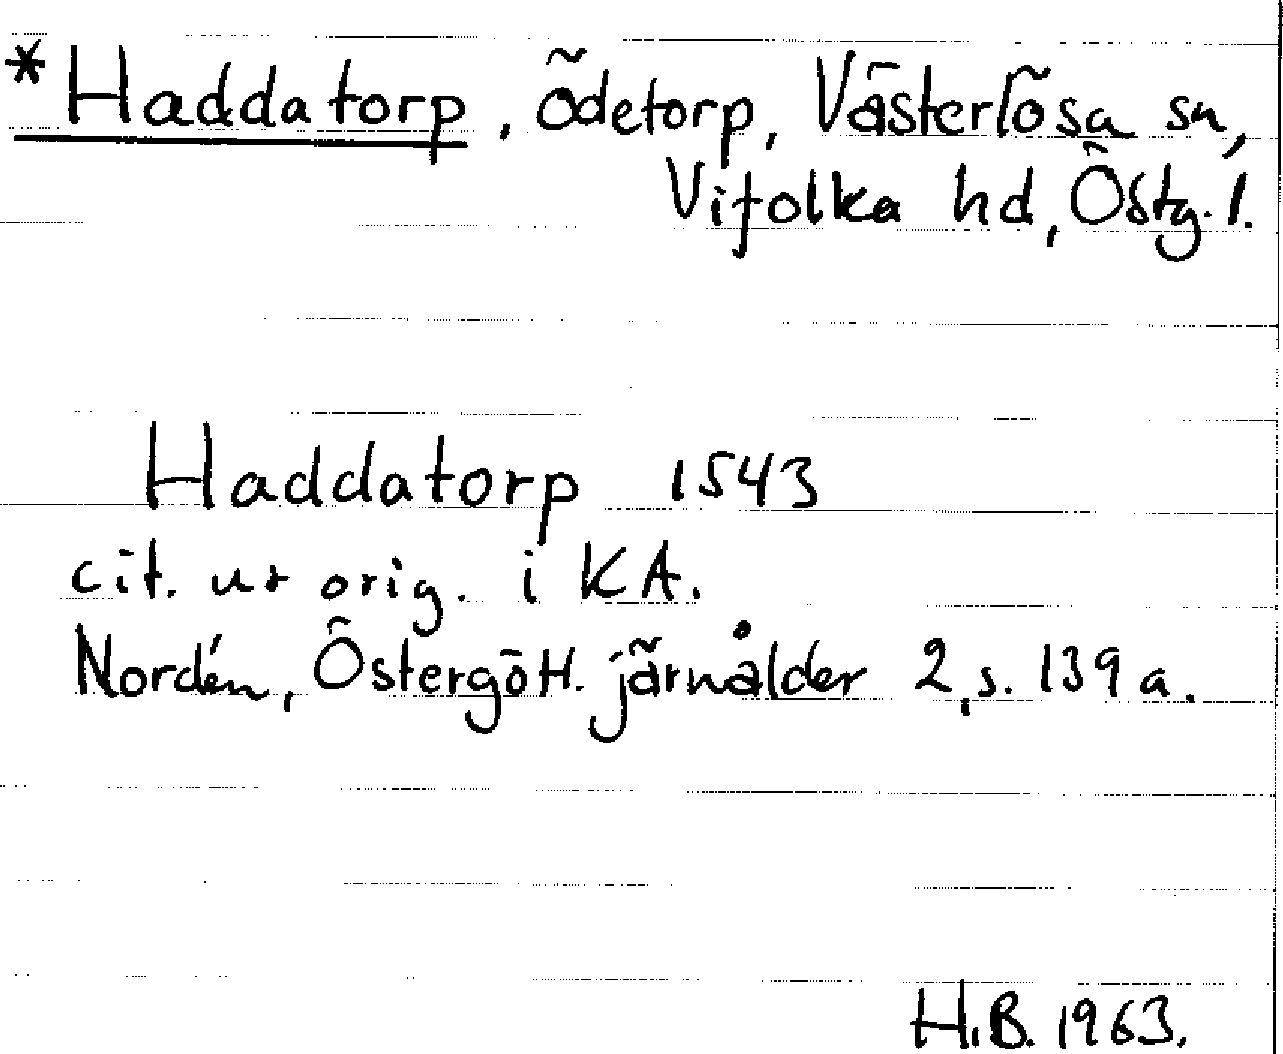 *Haddatorp, ödetorp, Västerlösa sn,
Vifolka hd, Östg. l.
Haddatorp 1543
cit. ur orig. i KA.
Nordén, Östergötl. järnålder 2, s. 139 a.
H.B. 1963.